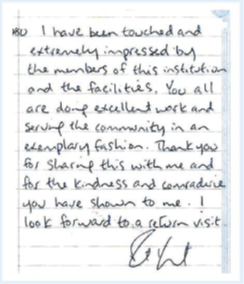 I have been touched and
extremely impressed by
the members of this institution
and the facilities. You all
are doing excellent work and
serving the community in an
exemplary fashion. Thank you
for sharing this with me and
for the kindness and comradirie
you have shown to me. I
look forward to a return visit.